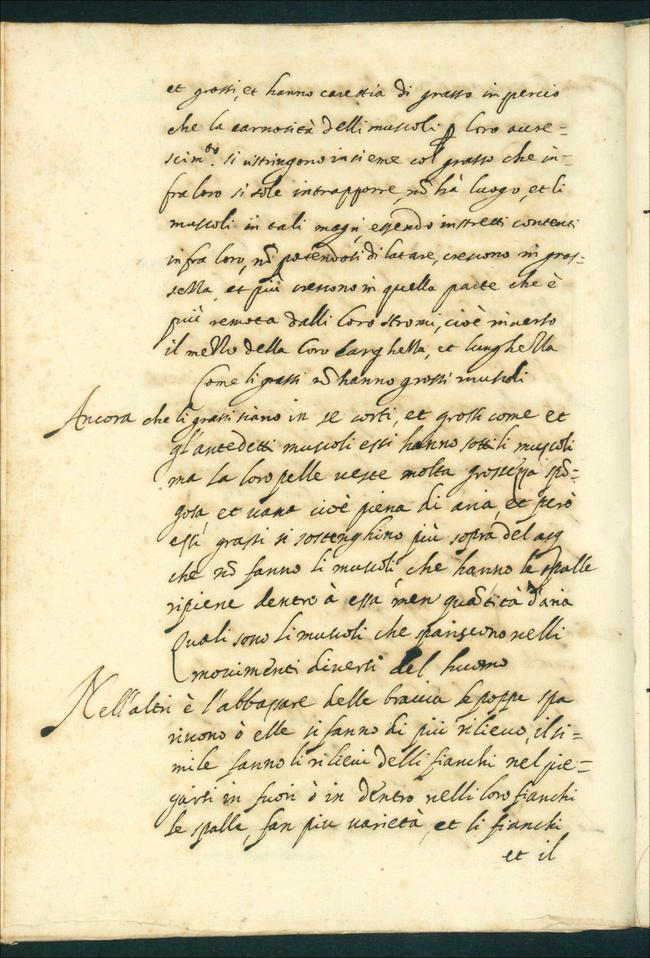 et grossi, et hanno carestia di grasso impercio
che la carnosità delli muscoli p loro acre=
scim.to si ristringono insieme col grasso che in=
fra loro si sole intrapporre, nõ hà luogo, et li
muscoli in tali magri, essendo in stretti contenti
infra loro, nõ potendosi dilatare, crescono in gros=
sezza, et più crescono in quella parte che è
più remota dalli loro stromi, cioè inverso
il mezzo della loro larghezza, et lunghezza
Come li grassi nõ hanno grossi muscoli
Ancora che li grassi siano in se corti, et grossi come et
gl'antedetti muscoli essi hanno sottili muscoli
ma la loro pelle veste molta grossezza spõ=
gosa et vana cioè piena di aria, et però
essi grassi si sostenghino più sopra del acq
che nõ fanno li muscoli che hanno le spalle
ripiene dentro à essa men quãtità d'aria
Quali sono li muscoli che spariscono nelli
movimenti diversi del huomo
Nell'altri è l'abbassare delle braccia le poppe spa
riuono ò elle si fanno di più rilievo, il si=
mile fanno li rilievi delli fianchi nel pie=
garsi in fuori ò in dentro nelli loro fianchi
le spalle, fan piu varietà, et li fianchi
et il